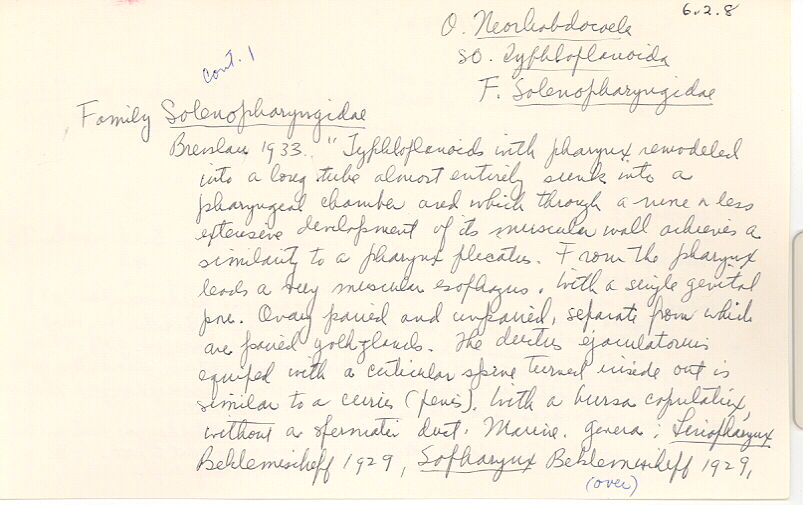 6.2.8
O. Neorhabdocoela
cont. 1
SO. Typhloplanoida
F. Solenopharyngidae
Family Solenopharyngidae
Breslau 1933. "Typhloplanoids with pharynx remodeled
into a long tube almost entirely sunk into a
pharyngeal chamber and which through a more or less
extensive development of its muscular wall achieves a
similarity to a pharynx plicatus. From the pharynx
leads a very muscular esophagus. With a single genital
pore. Ovary paired and unpaired, separate from which
are paired yolk glands. The ductus ejaculatorius
equiped with a cuticular spine turned inside out is
similar to a cirrus (penis). With a bursa copulatrix,
without a spermatic duct. Marine. Genera:
Beklemischeff 1929, Sopharynx Beklemischeff 1929,
(over)